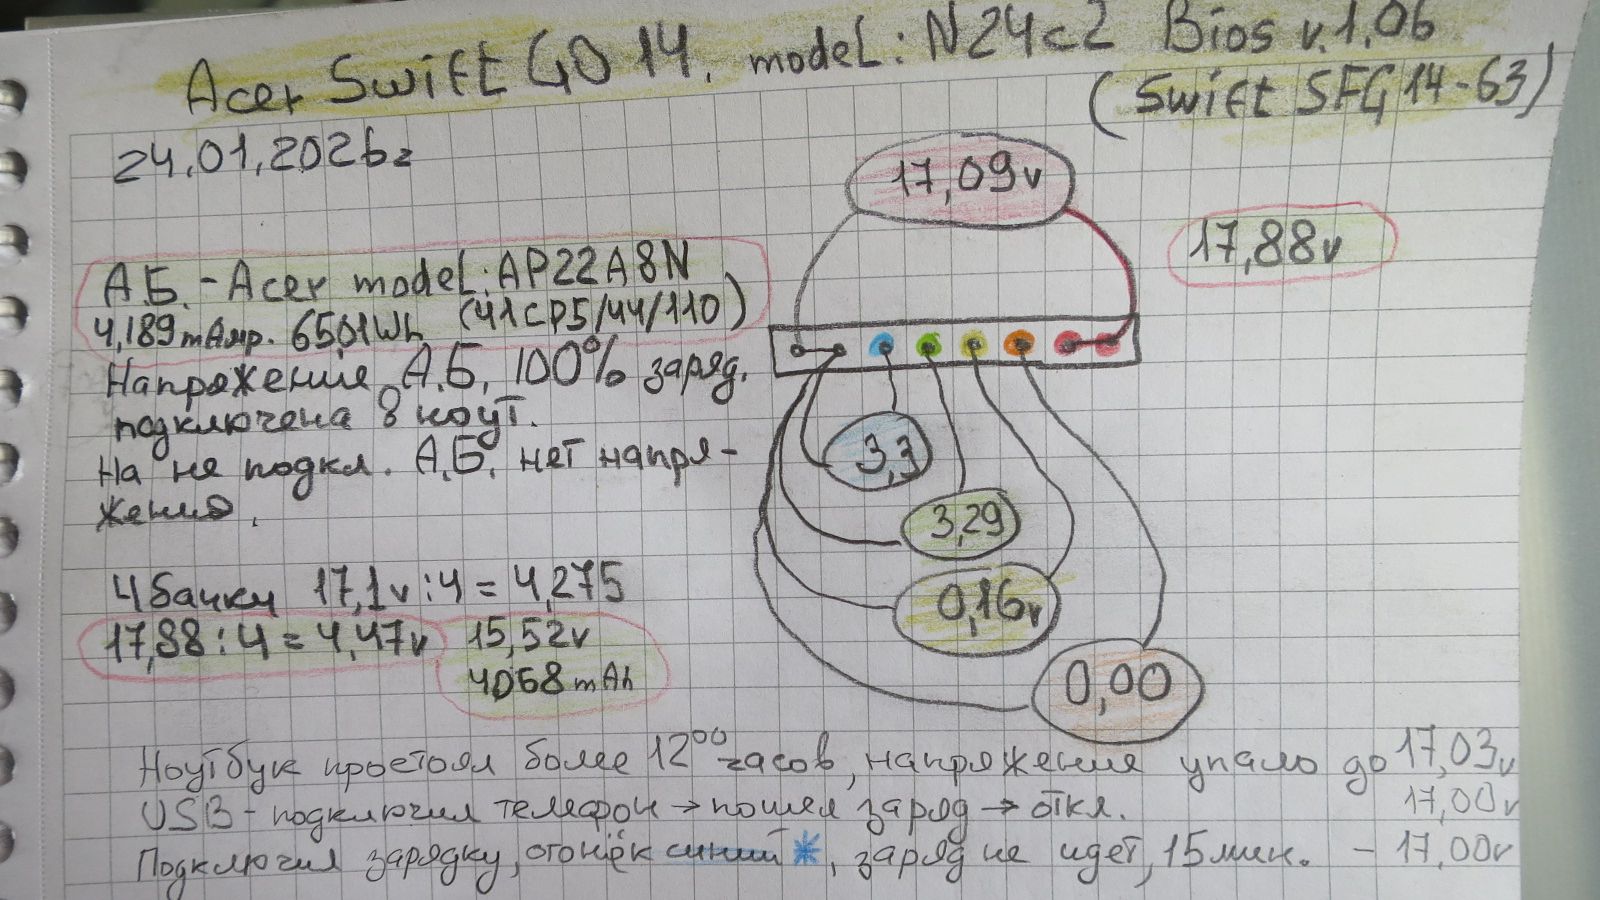 Acer Swift GO 14. model: N24c2 Bios v.1,06
(Swift SFG 14-63)
24.01.2026г
17,09v
17,88v
А.Б. - Acer model: AP22A8N
4,189 mАмр. 65,01Wh (41CP5/44/110)
Напряжение А.Б. 100% заряд.
подключена в ноут.
На не подкл. А.Б. нет напря-
жения.
3,3
3,29
0,16v
0,00
4 банки 17,1v : 4 = 4,275
17,88 : 4 = 4,47v 15,52v
4068 mAh
Ноутбук простоял более 12⁰⁰ часов, напряжение упало до 17,03v
USB - подключил телефон → пошел заряд → откл. 17,00v
Подключил зарядку, огонёк синий, заряд не идет, 15 мин. - 17,00v